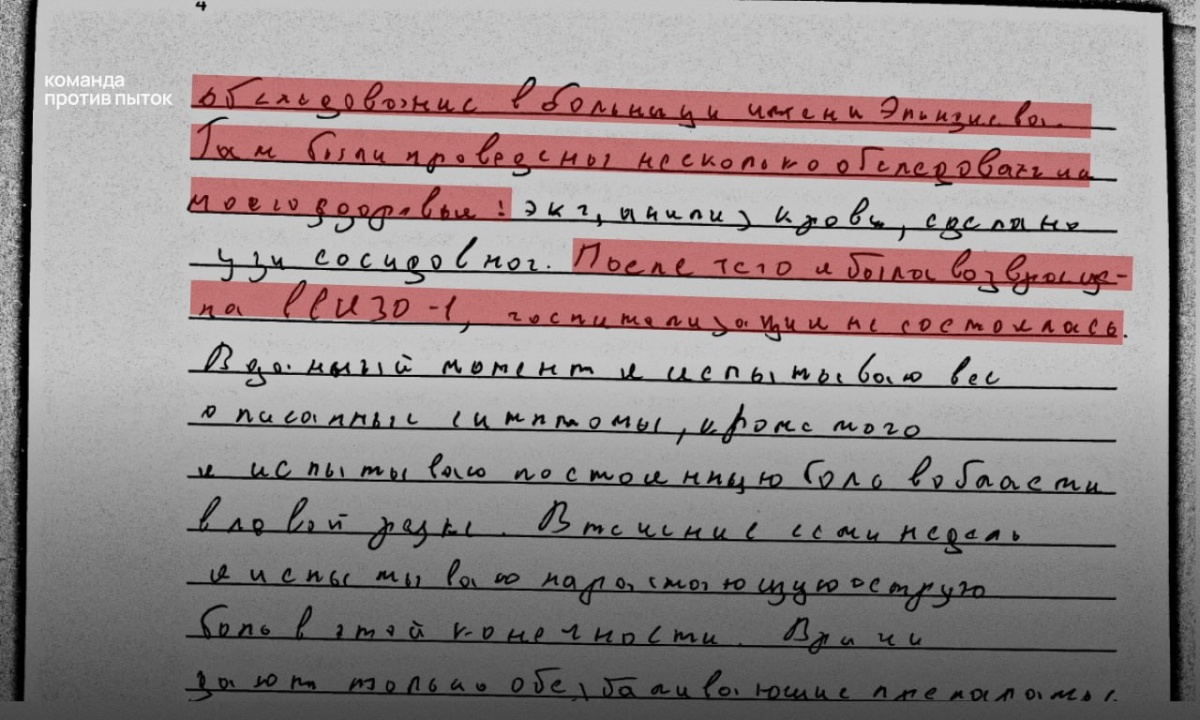 4
команда
против пыток
обследование в больници имени Эпьндиева.
Там были проведены несколько обследований
моего здоровья: экг, анализ крови, сделано
узи сосудов ног. После того я была возвраще-
на в СИЗО-1, госпитализации не состоялась.
В данный момент я испытываю все
описанные симптомы, кроме того
я испытываю постоянную боль в области
в левой руке. В течение семи недель
я испытываю нарастающую острую
боль в этой конечности. Врачи
дают только обезбаливающие препараты.